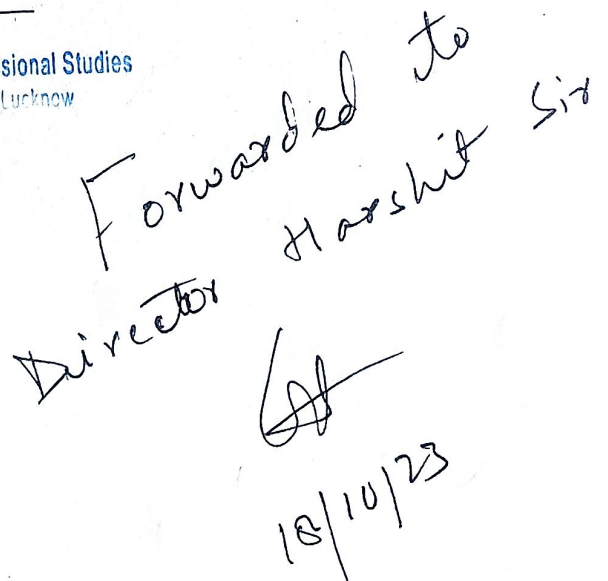 sional Studies
Lucknow
Forwarded to
Director Harshit Sir
18/10/23